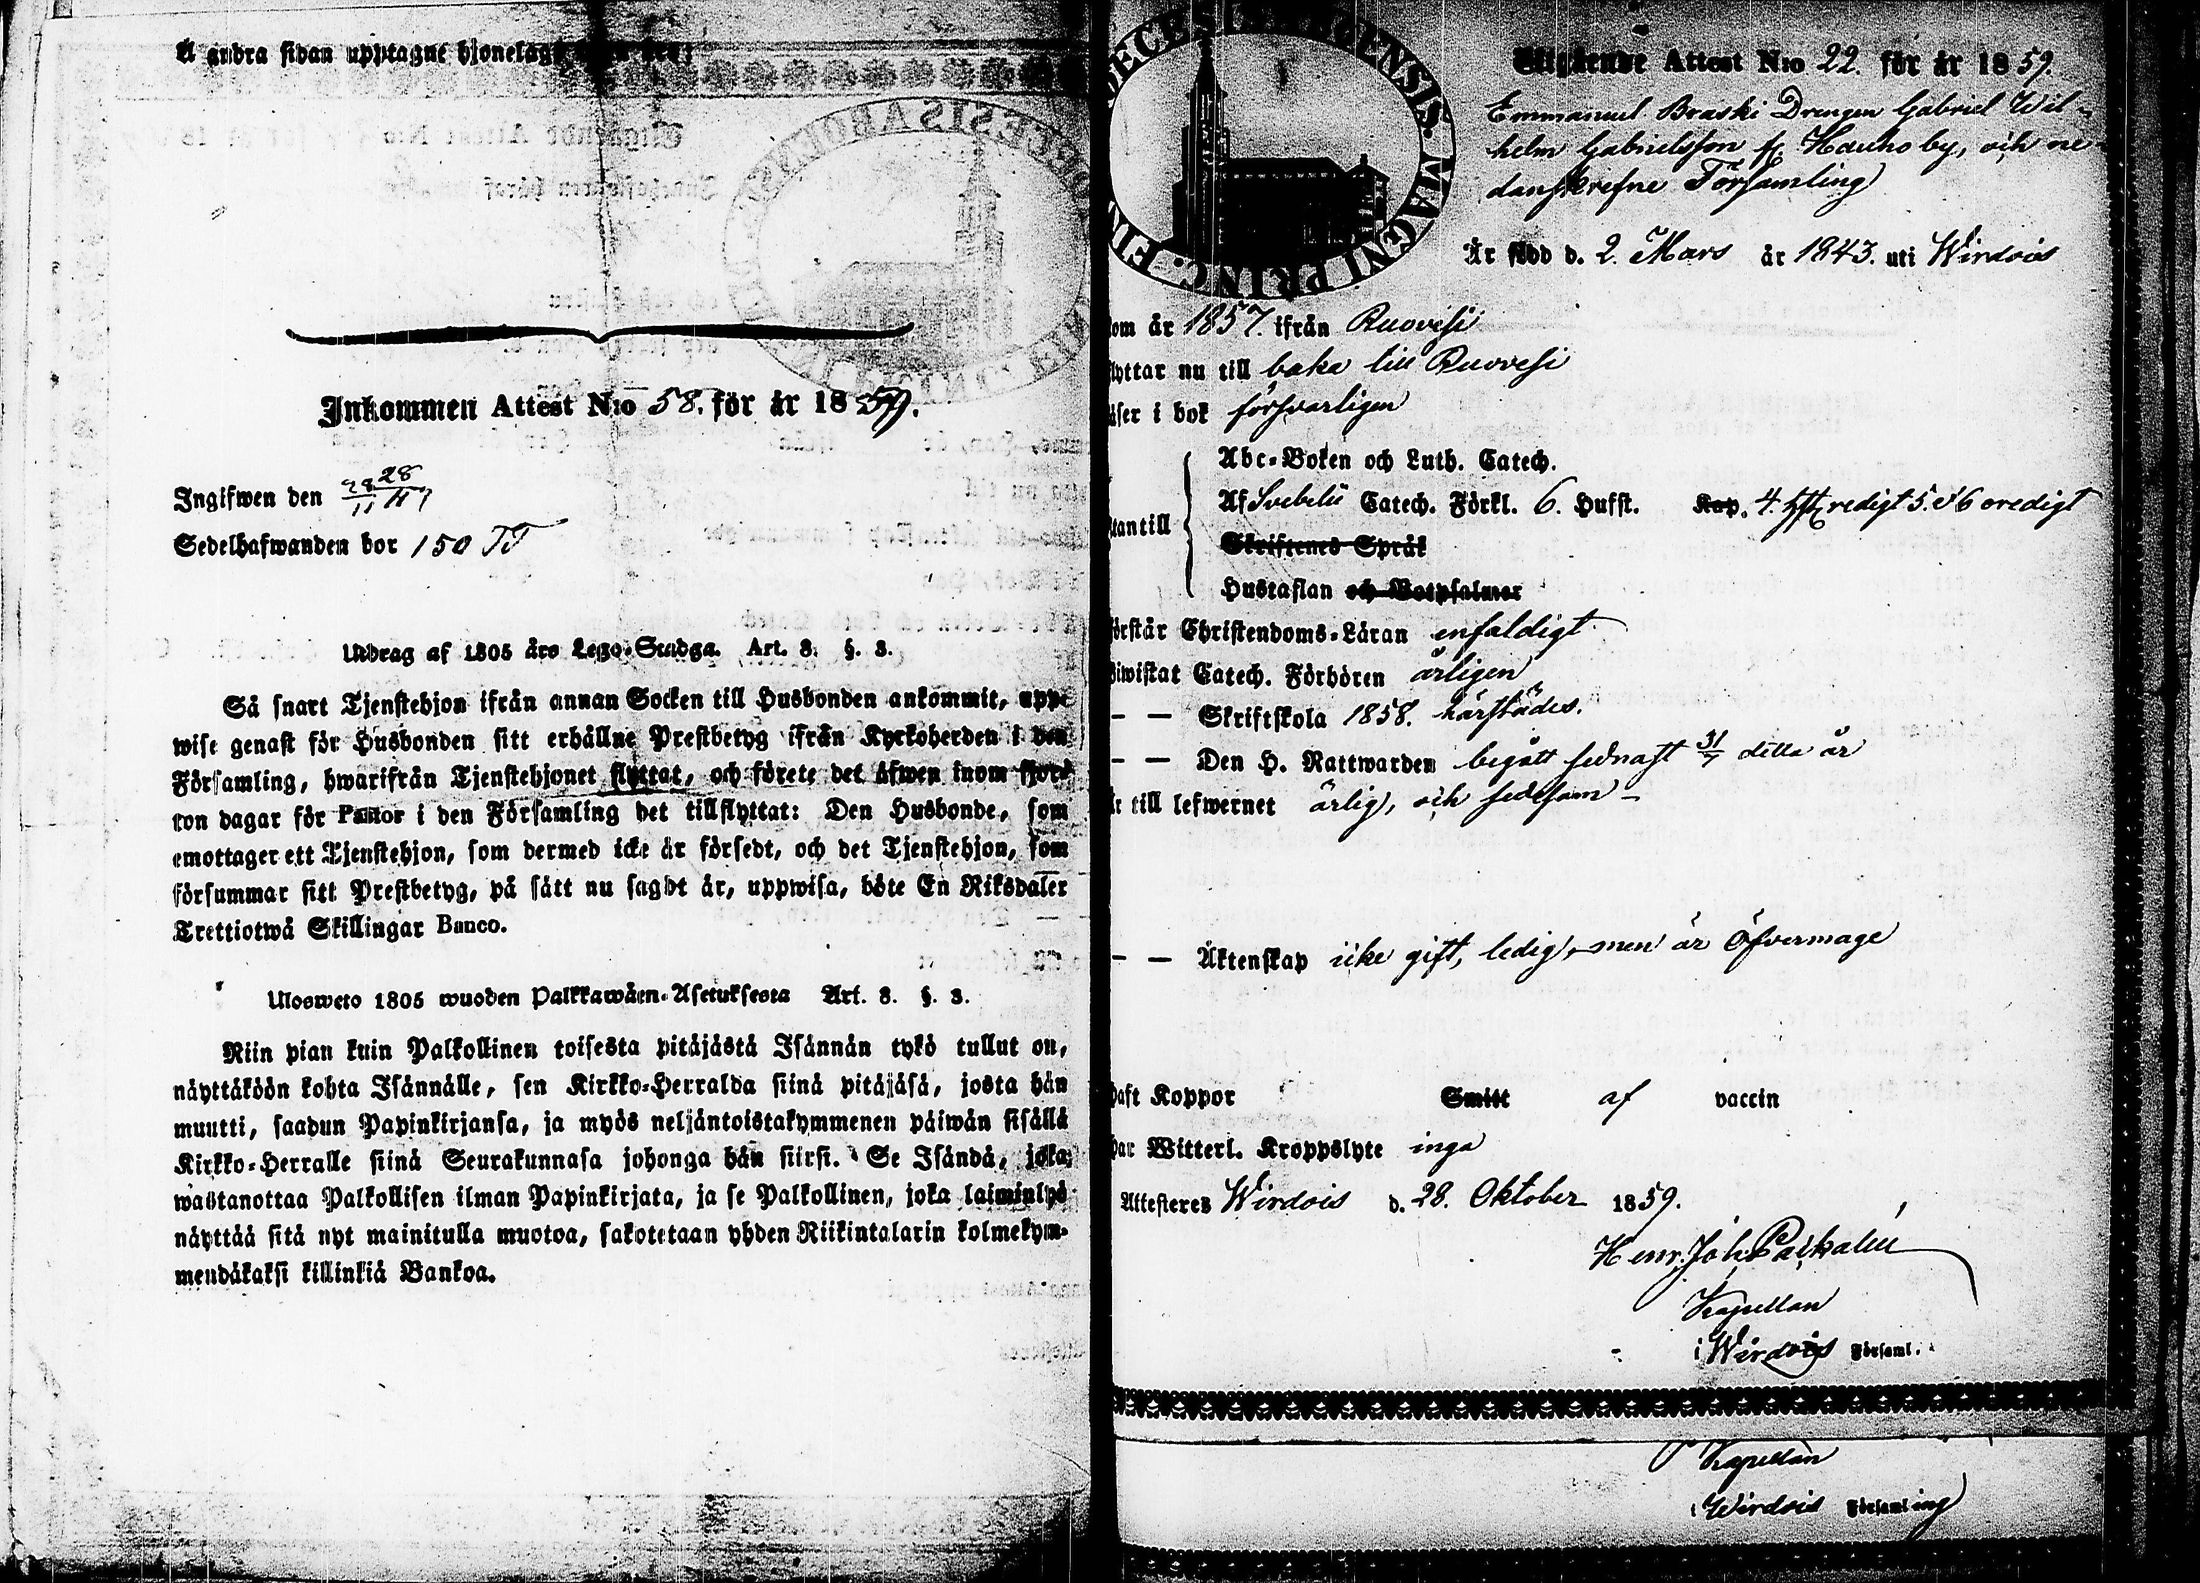 Å andra sidan upptagne hjonelag
Inkommen Attest N:o 58. för år 1859.
Ingifwen den 28/11
Sedelhafwanden bor 150 TT
Utdrag af 1805 års Lego-Stadga. Art. 3. §. 3.
Så snart Tjenstehjon ifrån annan Socken till Husbonden ankommit, upp-
wise genast för Husbonden sitt erhållne Prestbetyg ifrån Kyrkoherden i den
Församling, hwarifrån Tjenstehjonet flyttat, och förete det äfwen inom fjor-
ton dagar för Pastor i den Församling det tillflyttat: Den Husbonde, som
emottager ett Tjenstehjon, som dermed icke är försedt, och det Tjenstehjon, som
försummar sitt Prestbetyg, på sätt nu sagdt är, uppwisa, böte En Riksdaler
Trettiotwå Skillingar Banco.
Ulosweto 1805 wuoden Palkkawäen-Asetuksesta Art. 3. §. 3.
Niin pian kuin Palkollinen toisesta pitäjästä Isännän tykö tullut on,
näyttäköön kohta Isännälle, sen Kirkko-Herralda siinä pitäjäsä, josta hän
muutti, saadun Papinkirjansa, ja myös neljäntoistakymmenen päiwän sisällä
Kirkko-Herralle siinä Seurakunnasa johonga hän siirsi. Se Isändä, joka
wastanottaa Palkollisen ilman Papinkirjata, ja se Palkollinen, joka laiminlyö
näyttää sitä nyt mainitulla muotoa, sakotetaan yhden Riikintalarin kolmekym-
mendäkaksi killinkiä Bankoa.
DECESIS ABOENSIS. MAGNI PRINC. FIN
Utgående Attest N:o 22. för år 1859.
Emmanuel Braski Drengen Gabriel Wil-
helm Gabrielsson fr Hauho by, och ne-
danskrefne Församling
Är född d. 2. Mars år 1843. uti Wirdois
om år 1857. ifrån Ruovesi
lyttar nu till baka till Ruovesi
äser i bok försvarligen
Abc-Boken och Luth. Catech.
Af Svebelii Catech. Förkl. 6. Hufst. Kap. 4. redigt 5. & 6 oredigt
utantill
Skriftenes Språk
Hustaflan och Botpsalmer
örstår Christendoms-Läran enfaldigt
biwistat Catech. Förhören årligen
— — Skriftskola 1858. härstädes.
— — Den H. Nattwarden begått sednast 31/7 detta år
är till lefwernet ärlig, och sedesam —
— — Äktenskap icke gift, ledig, men är Öfvermage
haft Koppor Smitt af vaccin
har Witterl. Kroppslyte inga
Attesteres Wirdois d. 28. Oktober 1859.
Henr. Joh.
Kapellan
i Wirdois Församl.
Kapellan
i Wirdois Församling